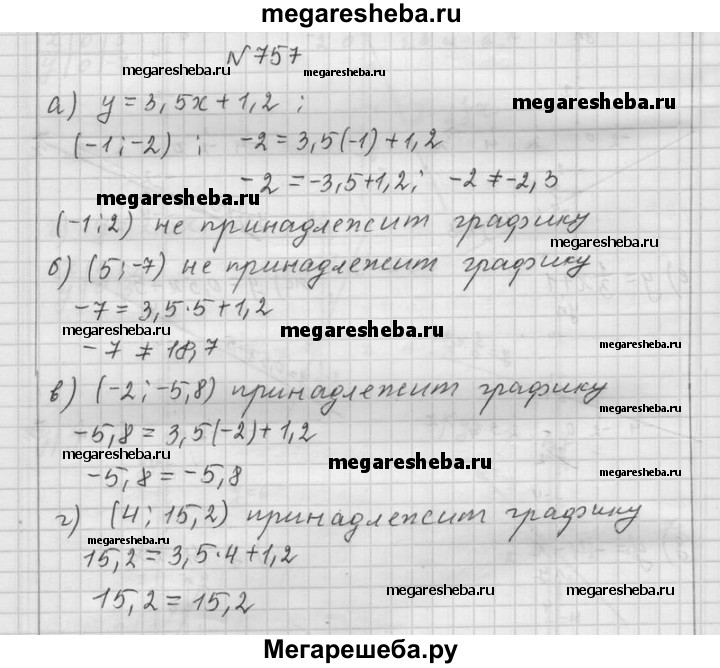 megaresheba.ru
№757
megaresheba.ru megaresheba.ru
а) y = 3,5x + 1,2 ; megaresheba.ru
(-1; -2) ; -2 = 3,5(-1) + 1,2
-2 = -3,5 + 1,2; -2 ≠ -2,3
megaresheba.ru
(-1; 2) не принадлежит графику
megaresheba.ru
б) (5; -7) не принадлежит графику
-7 = 3,5·5 + 1,2
megaresheba.ru megaresheba.ru
-7 ≠ 18,7
в) (-2; -5,8) принадлежит графику
megaresheba.ru
-5,8 = 3,5(-2) + 1,2
megaresheba.ru megaresheba.ru
-5,8 = -5,8
megaresheba.ru
г) (4; 15,2) принадлежит графику
megaresheba.ru
15,2 = 3,5·4 + 1,2
15,2 = 15,2
megaresheba.ru megaresheba.ru
Мегарешеба.ру